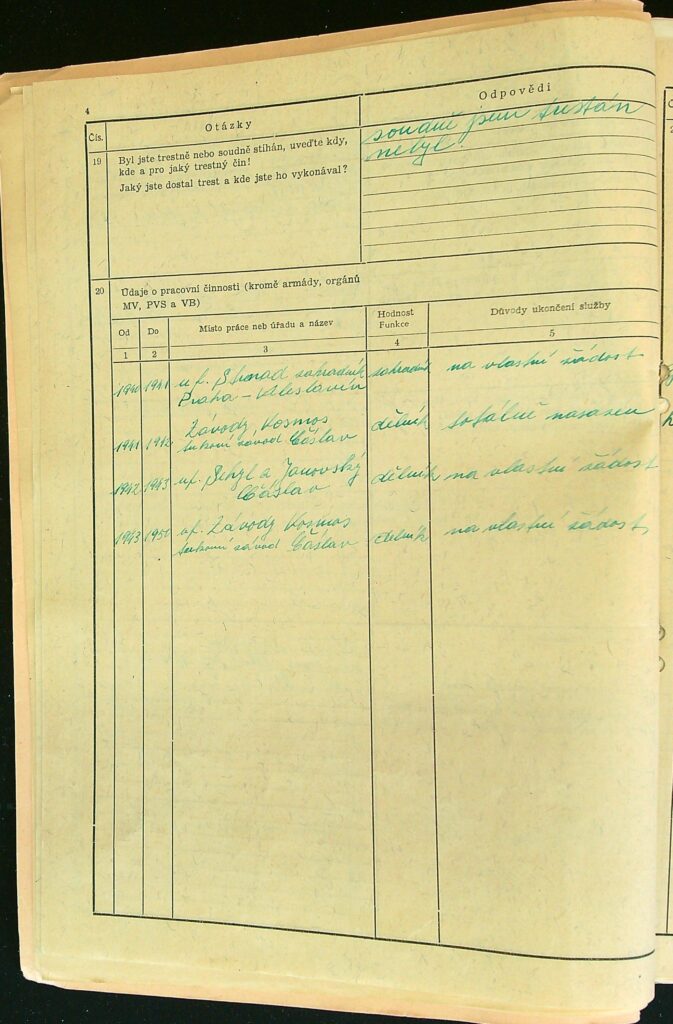 4
Čís.
Otázky
Odpovědi
19
Byl jste trestně nebo soudně stíhán, uveďte kdy,
kde a pro jaký trestný čin!
Jaký jste dostal trest a kde jste ho vykonával?
soudně jsem trestán
nebyl
20
Údaje o pracovní činnosti (kromě armády, orgánů
MV, PVS a VB)
Od
Do
Místo práce neb úřadu a název
Hodnost
Funkce
Důvody ukončení služby
1
2
3
4
5
1940 1941 u f. zahradník zahradník na vlastní žádost
Praha - Veleslavín
1941 1942 Závody Kosmos dělník totálně nasazen
tukový závod Čáslav
1942 1943 u f. a Janovský dělník na vlastní žádost
Čáslav
1943 1950 Závody Kosmos dělník na vlastní žádost
tukový závod Čáslav